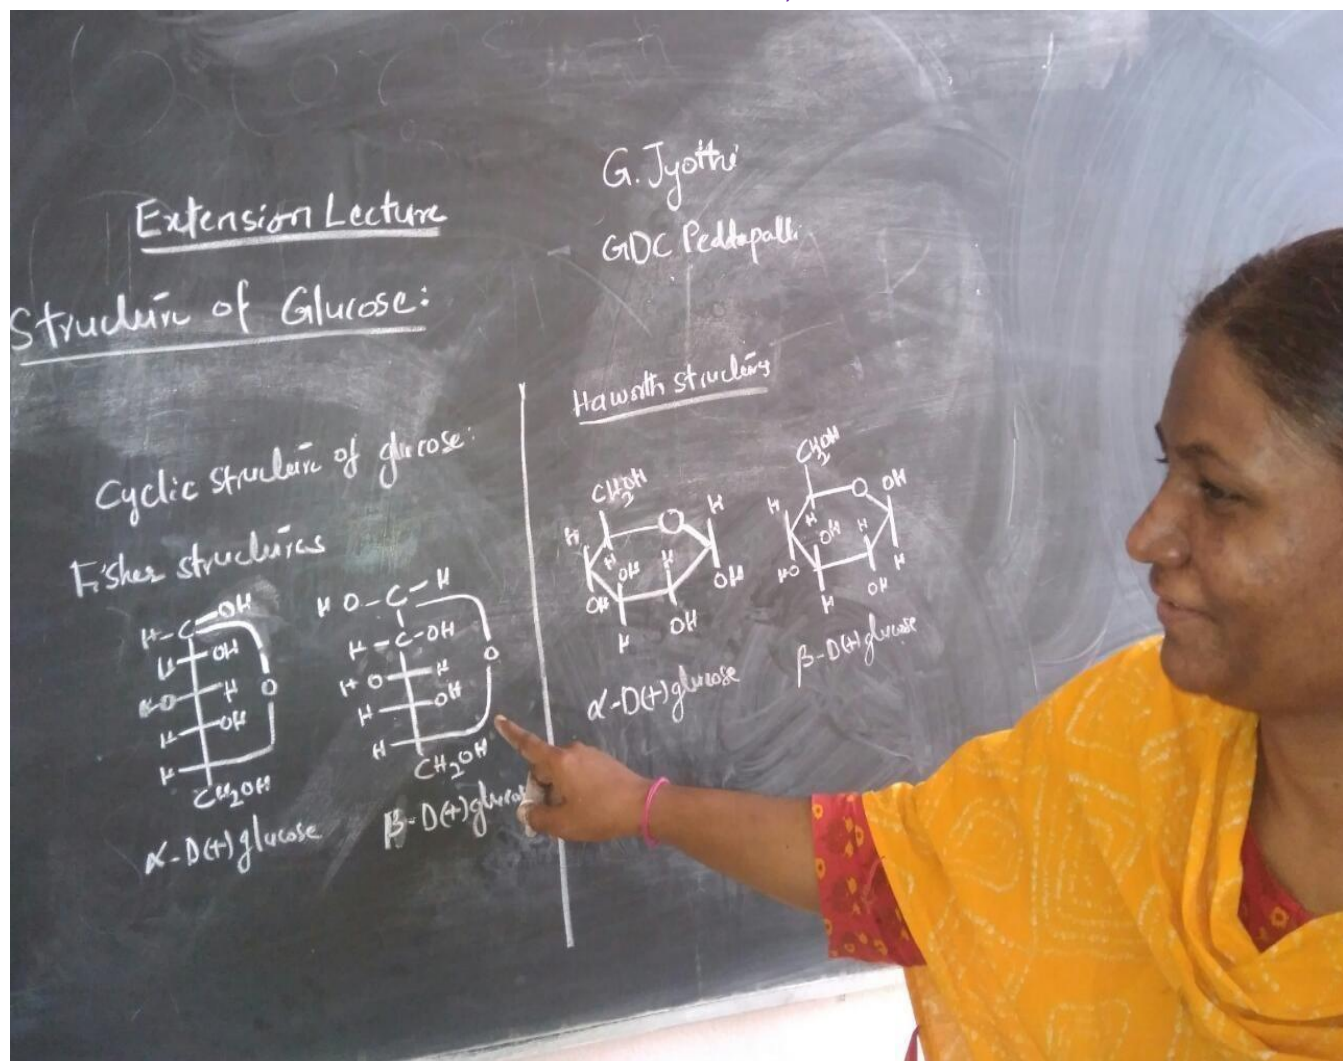 Extension Lecture
G. Jyothi
GDC Peddapalli
Structure of Glucose:
Haworth structures
Cyclic structure of glucose:
Fisher structures
H-C-OH
H OH
HO H
H OH
H
O
CH2OH
α-D(+)glucose
HO-C-H
H-C-OH
HO H
H OH
H
O
CH2OH
β-D(+)glucose
CH2OH
O H
H
H OH H
OH OH
H OH
α-D(+)glucose
CH2OH
O OH
H
H OH H
HO H
H OH
β-D(+)glucose